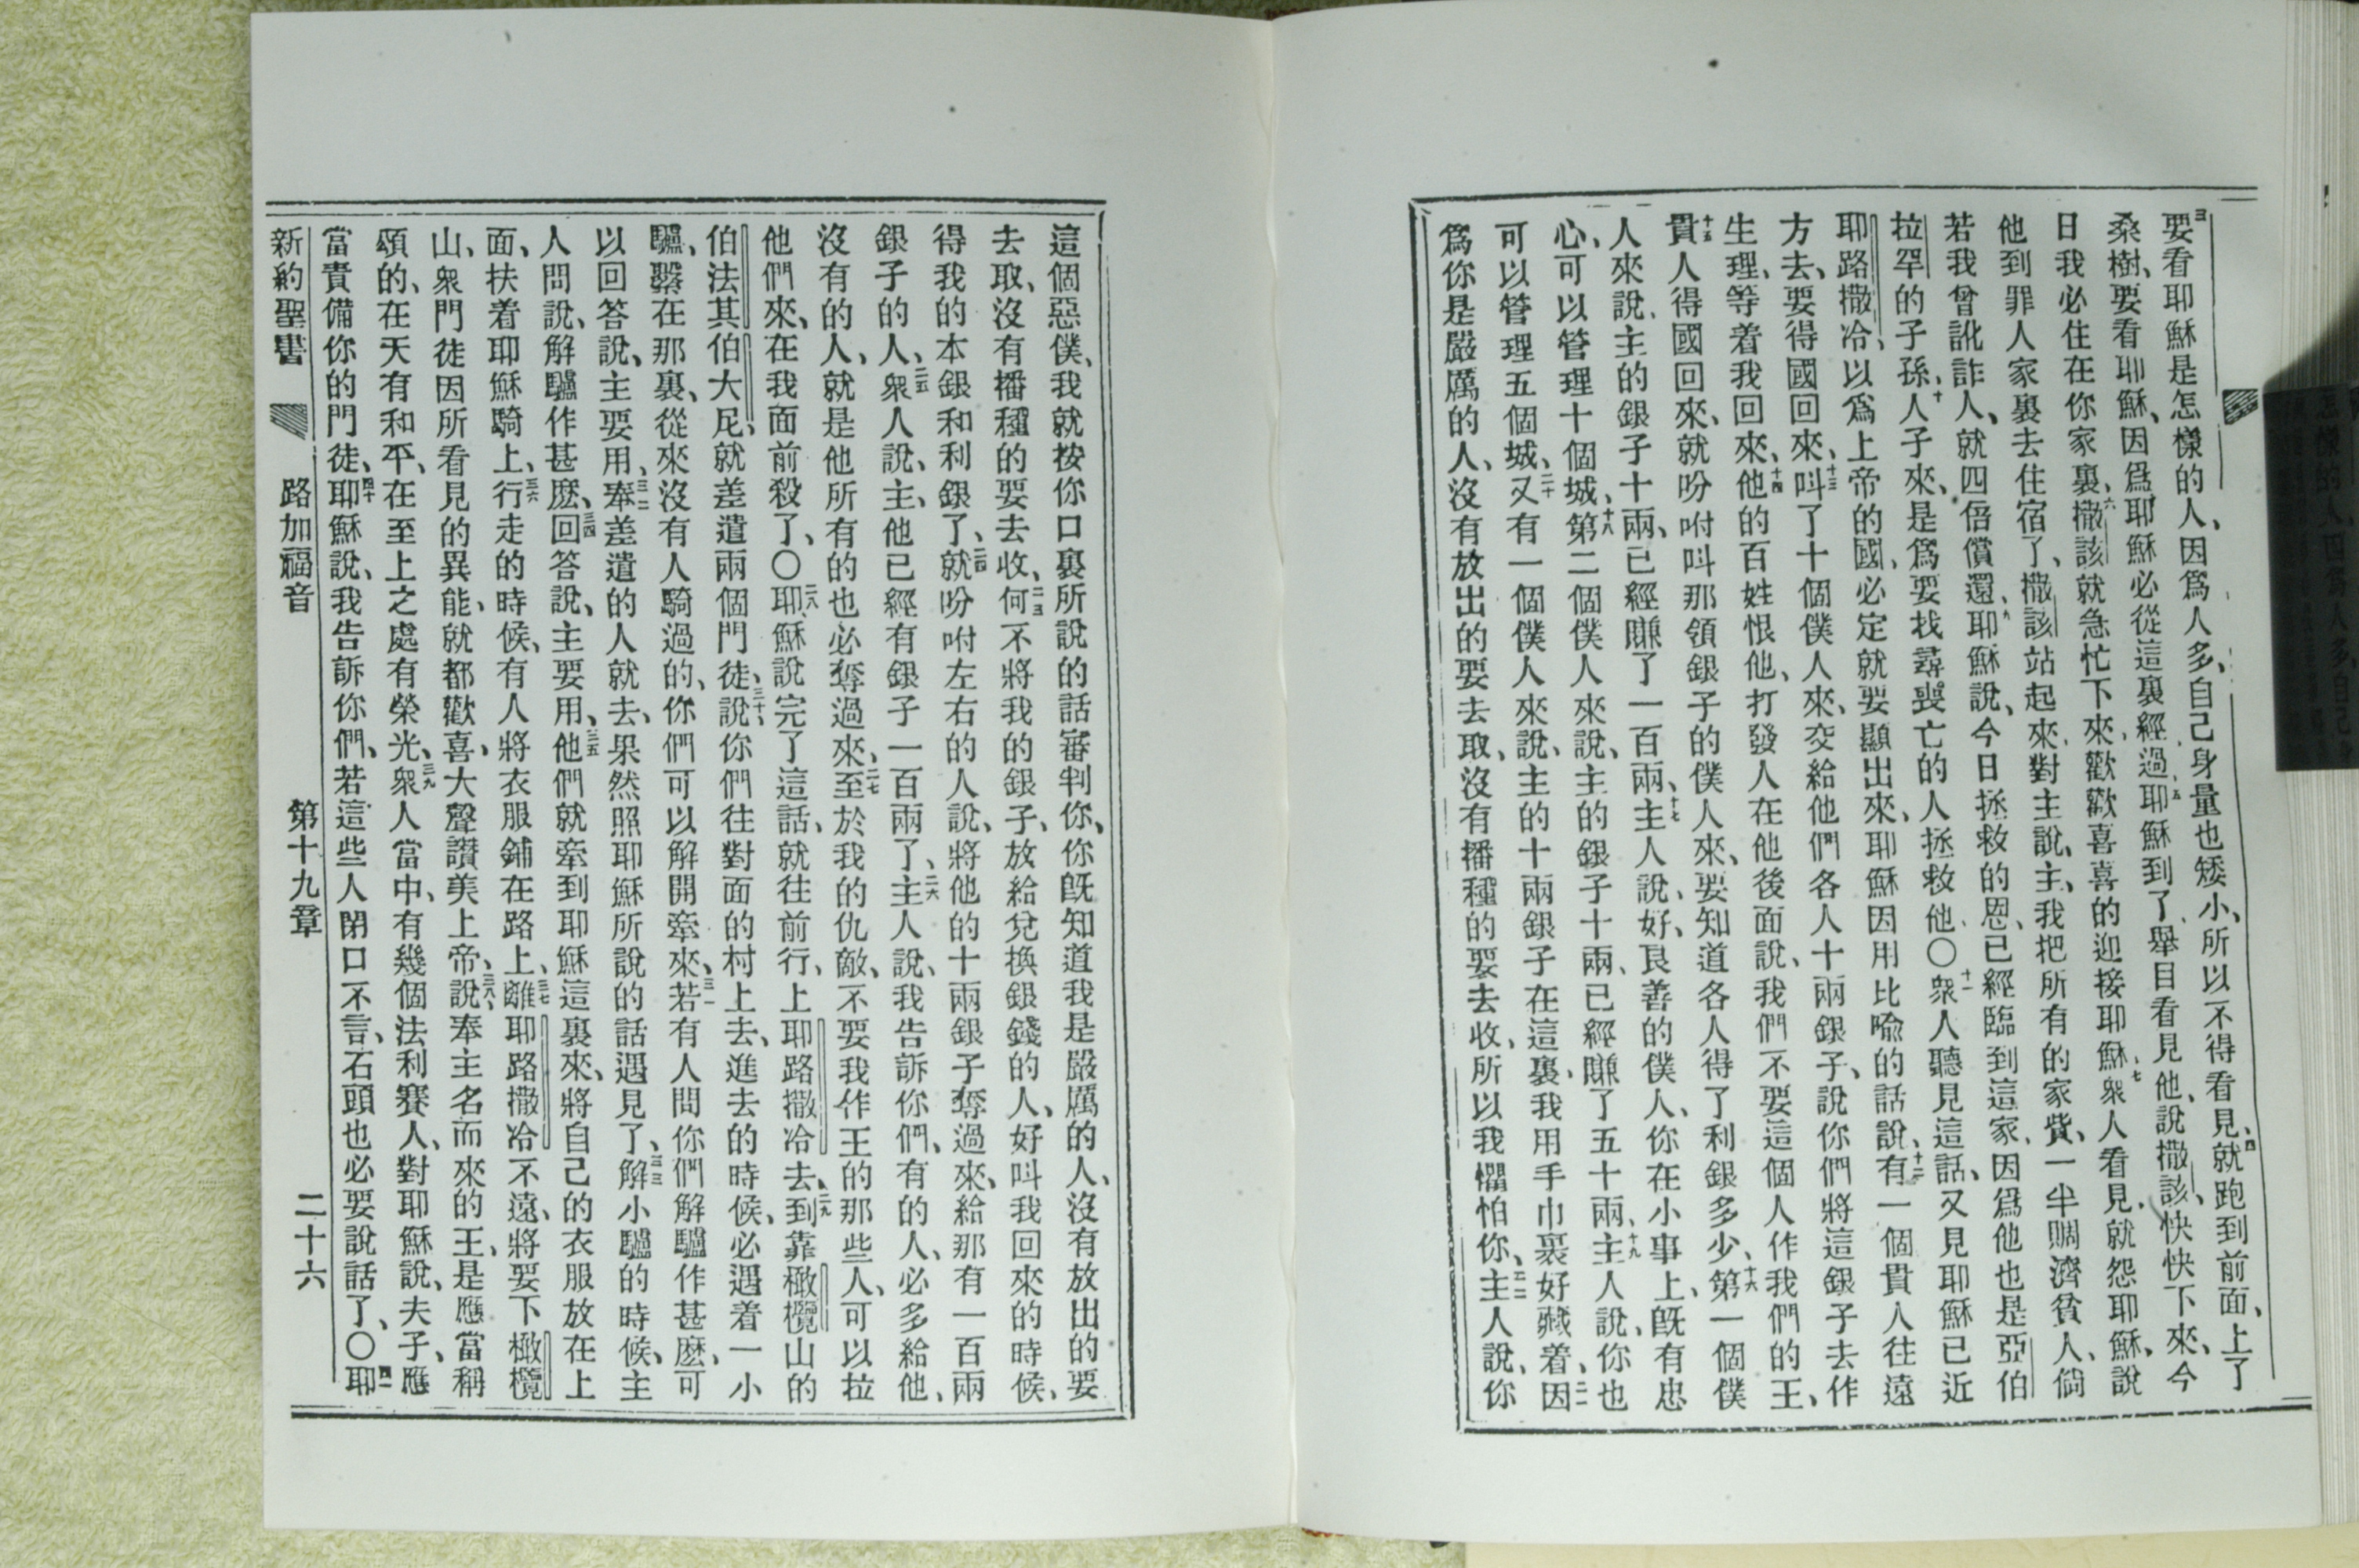 三要看耶穌是怎樣的人、因爲人多、自己身量也矮小、所以不得看見、四就跑到前面、上了
桑樹、要看耶穌、因爲耶穌必從這裏經過、五耶穌到了、舉目看見他、說撒該、快快下來、今
日我必住在你家裏、六撒該就急忙下來、歡歡喜喜的迎接耶穌、七衆人看見、就怨耶穌、說
他到罪人家裏去住宿了、撒該站起來、對主說、主、我把所有的家貲、一半賙濟貧人、倘
若我曾訛詐人、就四倍償還、九耶穌說、今日拯救的恩、已經臨到這家、因爲他也是亞伯
拉罕的子孫、十人子來、是爲要找尋喪亡的人拯救他、〇十一衆人聽見這話、又見耶穌已近
耶路撒冷、以爲上帝的國、必定就要顯出來、耶穌因用比喻的話說、十二有一個貴人往遠
方去、要得國回來、十三叫了十個僕人來、交給他們各人十兩銀子、說你們將這銀子去作
生理、等着我回來、十四他的百姓恨他、打發人在他後面說、我們不要這個人作我們的王、
十五貴人得國回來、就吩咐叫那領銀子的僕人來、要知道各人得了利銀多少、十六第一個僕
人來說、主的銀子十兩、已經賺了一百兩、十七主人說、好、良善的僕人、你在小事上、旣有忠
心、可以管理十個城、十八第二個僕人來說、主的銀子十兩、已經賺了五十兩、十九主人說、你也
可以管理五個城、二十又有一個僕人來說、主的十兩銀子在這裏、我用手巾裹好藏着、二一因
爲你是嚴厲的人、沒有放出的要去取、沒有播種的要去收、所以我懼怕你、二二主人說、你
這個惡僕、我就按你口裏所說的話審判你、你旣知道我是嚴厲的人、沒有放出的要
去取、沒有播種的要去收、二三何不將我的銀子、放給兌換銀錢的人、好叫我回來的時候、
得我的本銀和利銀了、二四就吩咐左右的人說、將他的十兩銀子奪過來、給那有一百兩
銀子的人、二五衆人說、主、他已經有銀子一百兩了、二六主人說、我告訴你們、有的人、必多給他、
沒有的人、就是他所有的也必奪過來、二七至於我的仇敵、不要我作王的那些人、可以拉
他們來、在我面前殺了、〇二八耶穌說完了這話、就往前行、上耶路撒冷去、二九到靠橄欖山的
伯法其、伯大尼、就差遣兩個門徒、三十說、你們往對面的村上去、進去的時候、必遇着一小
驢、繫在那裏、從來沒有人騎過的、你們可以解開牽來、三一若有人問你們解驢作甚麽、可
以回答說、主要用、三二奉差遣的人就去、果然照耶穌所說的話遇見了、三三解小驢的時候、主
人問說、解驢作甚麽、三四回答說、主要用、三五他們就牽到耶穌這裏來、將自己的衣服放在上
面、扶着耶穌騎上、三六行走的時候、有人將衣服鋪在路上、三七離耶路撒冷不遠、將要下橄欖
山、衆門徒因所看見的異能、就都歡喜、大聲讚美上帝、三八說、奉主名而來的王、是應當稱
頌的、在天有和平、在至上之處有榮光、三九衆人當中、有幾個法利賽人、對耶穌說、夫子、應
當責備你的門徒、四十耶穌說、我告訴你們、若這些人閉口不言、石頭也必要說話了、〇四一耶
新約聖書 路加福音 第十九章 二十六